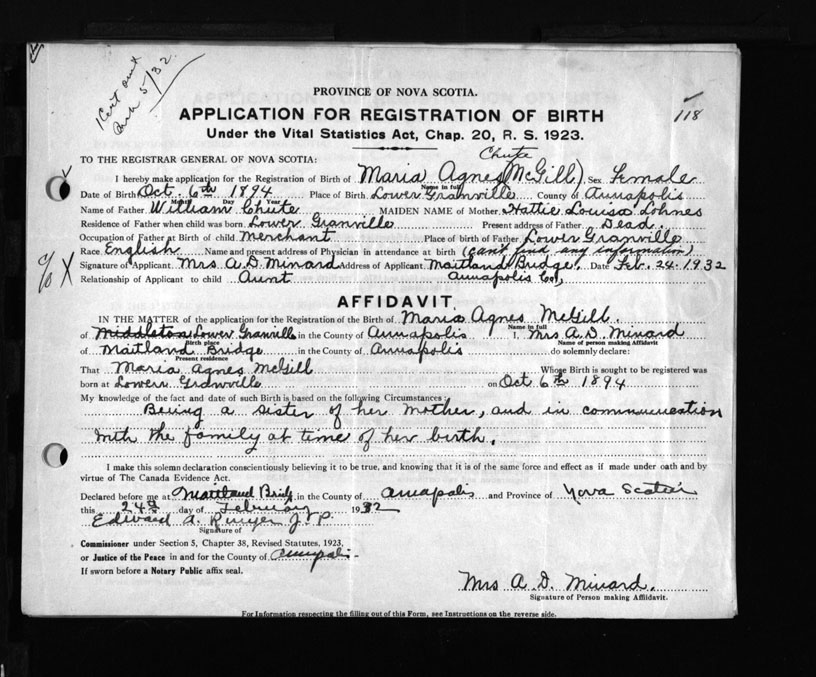 1 Cert sent
Mch 5/32
118
PROVINCE OF NOVA SCOTIA.
APPLICATION FOR REGISTRATION OF BIRTH
Under the Vital Statistics Act, Chap. 20, R. S. 1923.
TO THE REGISTRAR GENERAL OF NOVA SCOTIA:
Chute
I hereby make application for the Registration of Birth of Maria Agnes (McGill) Sex Female
Name in full
Date of Birth Oct. 6th 1894 Place of Birth Lower Granville County of Annapolis
Month Day Year
Name of Father William Chute MAIDEN NAME of Mother Hattie Louisa Lohnes
Residence of Father when child was born Lower Granville Present address of Father Dead.
Occupation of Father at Birth of child Merchant Place of birth of Father Lower Granville
Race English Name and present address of Physician in attendance at birth (can't find any information)
Signature of Applicant Mrs A. D. Minard Address of Applicant Maitland Bridge, Date Feb. 24. 1932
Relationship of Applicant to child Aunt Annapolis Co.,
c/o X
AFFIDAVIT.
IN THE MATTER of the application for the Registration of the Birth of Maria Agnes McGill.
Name in full
of Middleton Lower Granville in the County of Annapolis I, Mrs A. D. Minard
Birth place Name of person making Affidavit
of Maitland Bridge in the County of Annapolis do solemnly declare:
Present residence
That Maria Agnes McGill Whose Birth is sought to be registered was
born at Lower Granville on Oct 6th 1894
My knowledge of the fact and date of such Birth is based on the following Circumstances:
Being a sister of her mother, and in communication
with the family at time of her birth.
I make this solemn declaration conscientiously believing it to be true, and knowing that it is of the same force and effect as if made under oath and by
virtue of The Canada Evidence Act.
Declared before me at Maitland Bridge in the County of Annapolis and Province of Nova Scotia
this 24th day of February 1932
Edward A. J. P.
Signature of
Commissioner under Section 5, Chapter 38, Revised Statutes, 1923,
or Justice of the Peace in and for the County of Annapolis
If sworn before a Notary Public affix seal.
Mrs A. D. Minard.
Signature of Person making Affidavit.
For Information respecting the filling out of this Form, see Instructions on the reverse side.